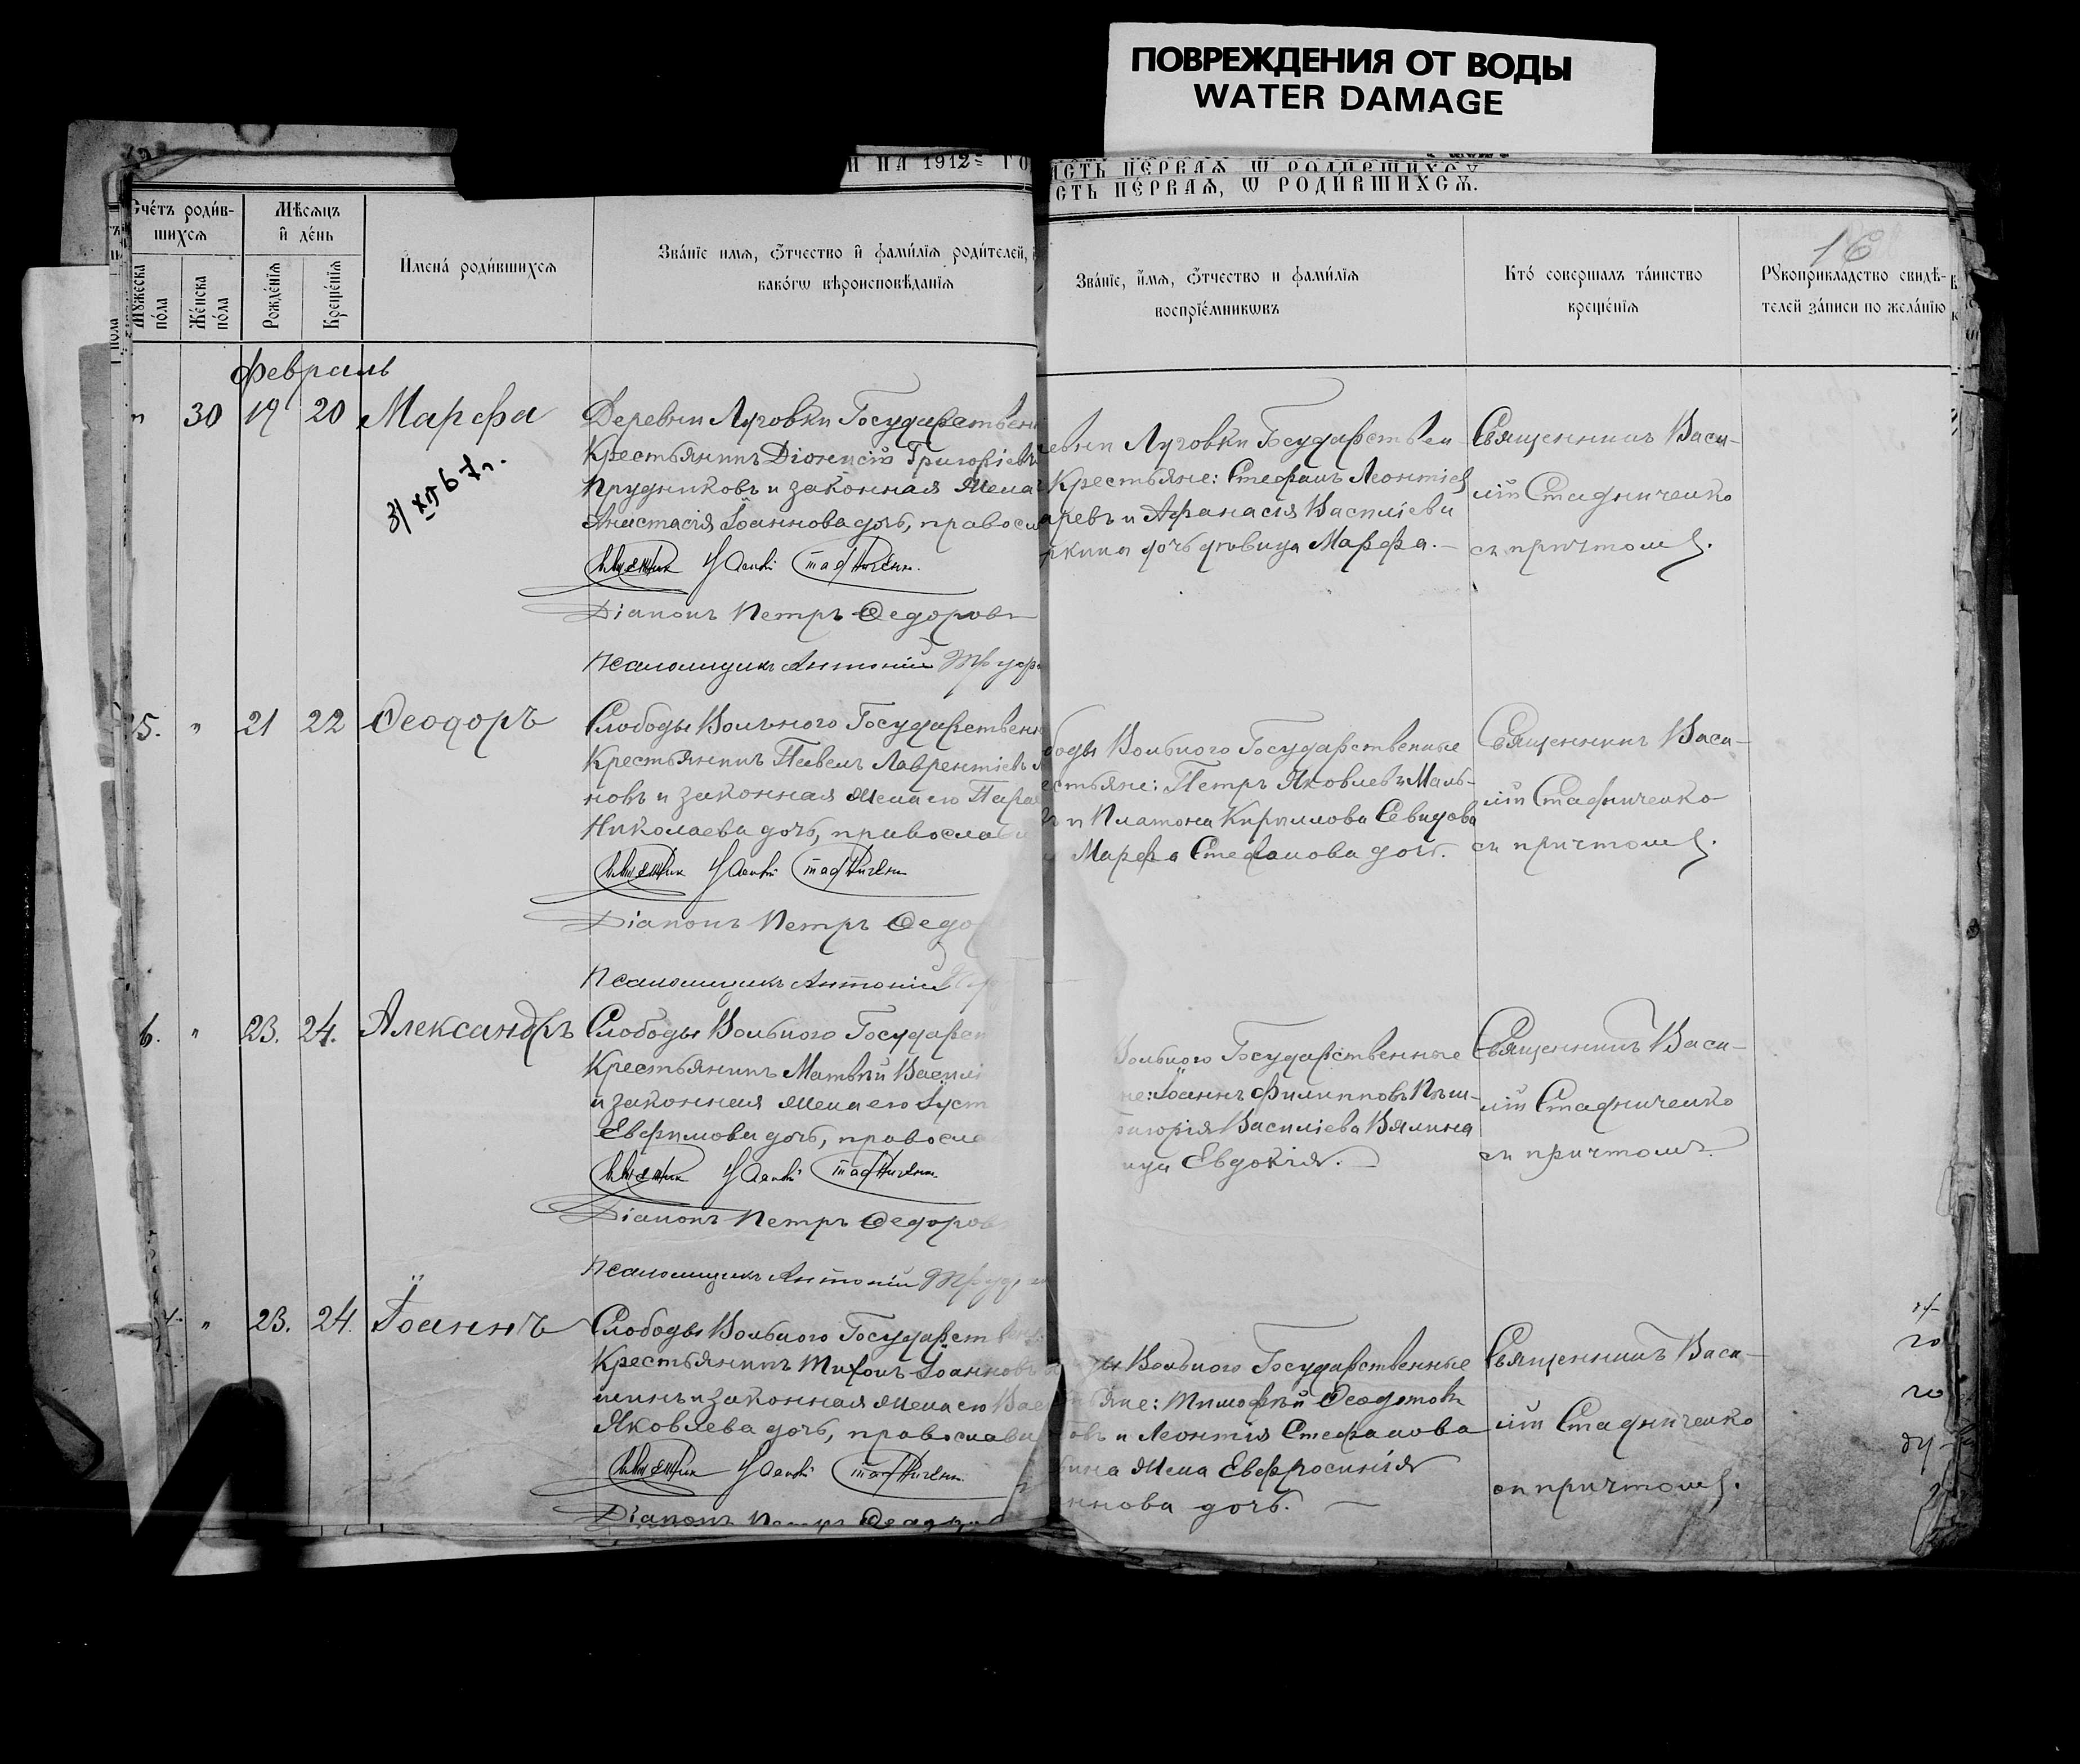 ПОВРЕЖДЕНИЯ ОТ ВОДЫ
WATER DAMAGE
И НА 1912 ГО
СТЬ ПЕ́РВАѦ, Ѡ РОДИ́ВШИХСѦ.
16
Счéтъ роди́в-
шихсѧ
Мꙋ́жеска пóла
Жéнска пóла
Мѣ́сѧцъ
и҆ дéнь
Рождéнїѧ
Крещéнїѧ
И҆менá роди́вшихсѧ
Звáнїе имѧ, ѻ҆́тчество и҆ фами́лїѧ роди́телей,
какóгѡ вѣроисповѣ́данїѧ
Звáнїе, и҆́мѧ, ѻ҆́тчество и фами́лїѧ
воспрїéмникѡвъ
Ктó совершалъ тáинство
крещéнїѧ
Рꙋкоприкладство свидѣ́-
телей зáписи по желáнїю
Февраль
30 19 20 Марѳа
31 XII 67г.
Деревни Луговки Государствен
Крестьянинъ Діонисій Григоріевъ
Прудниковъ и законная жена
Анастасія Іоаннова дочь, правосл
Діаконъ Петръ Ѳедоровъ
Псаломщикъ Антоній
евни Луговки Государствен
Крестьяне: Стефанъ Леонтіев
аревъ и Аѳанасія Василіева
дочь дѣвица Марѳа.
Священникъ Васи-
лій Стадниченко
съ причтомъ.
5. " 21 22 Ѳеодоръ
Слободы Вольного Государственн
Крестьянинъ Павелъ Лаврентіевъ
новъ и законная жена его Пара
Николаева дочь, православн
Діаконъ Петръ Ѳедо
Псаломщикъ Антоній
боды Вольного Государственные
естьяне: Петръ Яковлевъ Маль-
и Платона Кириллова Севидова
Марѳа Стефанова дочь.
Священникъ Васи-
лій Стадниченко
съ причтомъ.
6. " 23. 24. Александръ
Слободы Вольного Государст
Крестьянинъ Матвѣй Василі
и законная жена его Іуст
Евфимова дочь, правосла
Діаконъ Петръ Ѳедоровъ
Псаломщикъ Антоній
Вольного Государственные
не: Іоаннъ Филипповъ Пѣш-
ригорія Василіева Вялина
ица Евдокія.
Священникъ Васи-
лій Стадниченко
съ причтомъ.
" 23. 24. Іоаннъ
Слободы Вольного Государствен
Крестьянинъ Тихонъ Іоанновъ
шинъ и законная жена его Вас
Яковлева дочь, православн
Діаконъ Петръ Ѳедоров
ды Вольного Государственные
яне: Тимоѳѣй Ѳеодотовъ
овъ и Леонтія Стефанова
ина жена Евфросинія
ннова дочь.
Священникъ Васи-
лій Стадниченко
съ причтомъ.